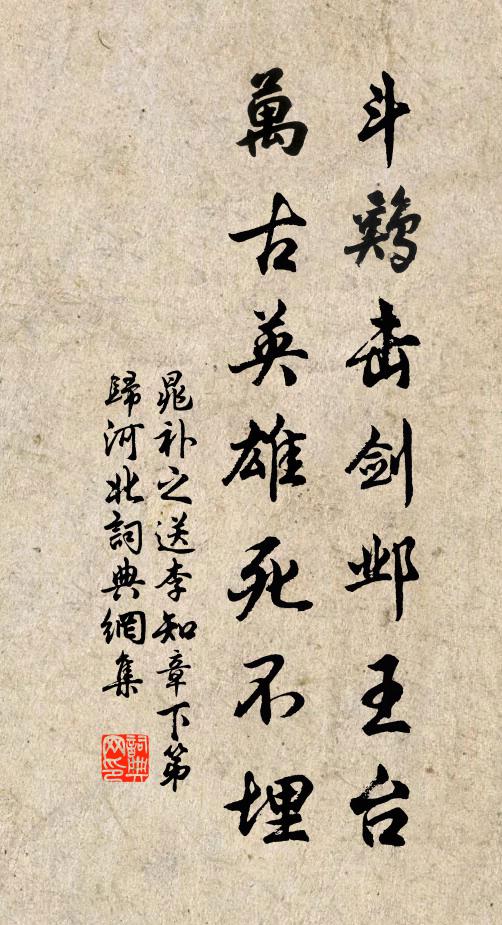 斗鷄击剑邺王台
萬古英雄死不埋
晁补之送李知章下第
歸河北詞典網集
詞典网印